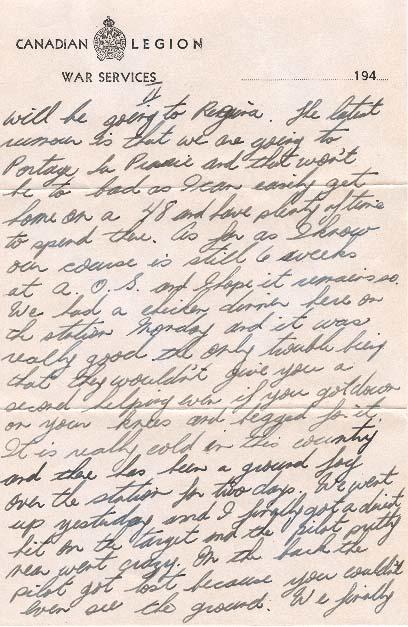 CANADIAN LEGION
WAR SERVICES
194
II
will be going to Regina. The latest
rumour is that we are going to
Portage La Prairie and that won't
be to bad as I can easily get
home on a 48 and have plenty of time
to spend there. As far as I know
our course is still 6 weeks
at A. O. S. and I hope it remains so.
We had a chicken dinner here on
the station Monday and it was
really good the only trouble being
that they wouldn't give you a
second helping even if you got down
on your knees and begged for it.
It is really cold in this country
and there has been a ground fog
over the station for two days. We went
up yesterday and I finally got a direct
hit on the target and the pilot pretty
near went crazy. On the back the
pilot got lost because you couldn't
even see the ground. We finally